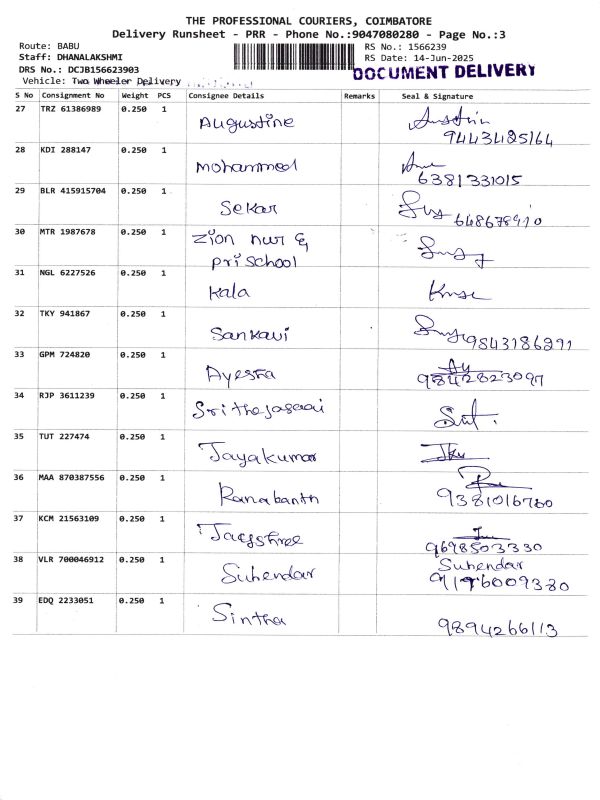 THE PROFESSIONAL COURIERS, COIMBATORE
Delivery Runsheet - PRR - Phone No.:9047080280 - Page No.:3
Route: BABU
RS No.: 1566239
Staff: DHANALAKSHMI
RS Date: 14-Jun-2025
DRS No.: DCJB156623903
DOCUMENT DELIVERY
Vehicle: Two Wheeler Delivery
S No Consignment No Weight PCS Consignee Details Remarks Seal & Signature
27 TRZ 61386989 0.250 1 Augustine
9443425164
28 KDI 288147 0.250 1 Mohammed
6381331015
29 BLR 415915704 0.250 1 Sekar
30 MTR 1987678 0.250 1 Zion nur &
pri School
31 NGL 6227526 0.250 1 Kala
32 TKY 941867 0.250 1 Sankavi
9843186291
33 GPM 724820 0.250 1 Ayesha
9842823097
34 RJP 3611239 0.250 1
35 TUT 227474 0.250 1 Jayakumar
36 MAA 870387556 0.250 1
9381016780
37 KCM 21563109 0.250 1 Jayshree
9698503330
38 VLR 700046912 0.250 1 Suhendar Suhendar
9176009380
39 EDQ 2233051 0.250 1 Sintha
9894266113